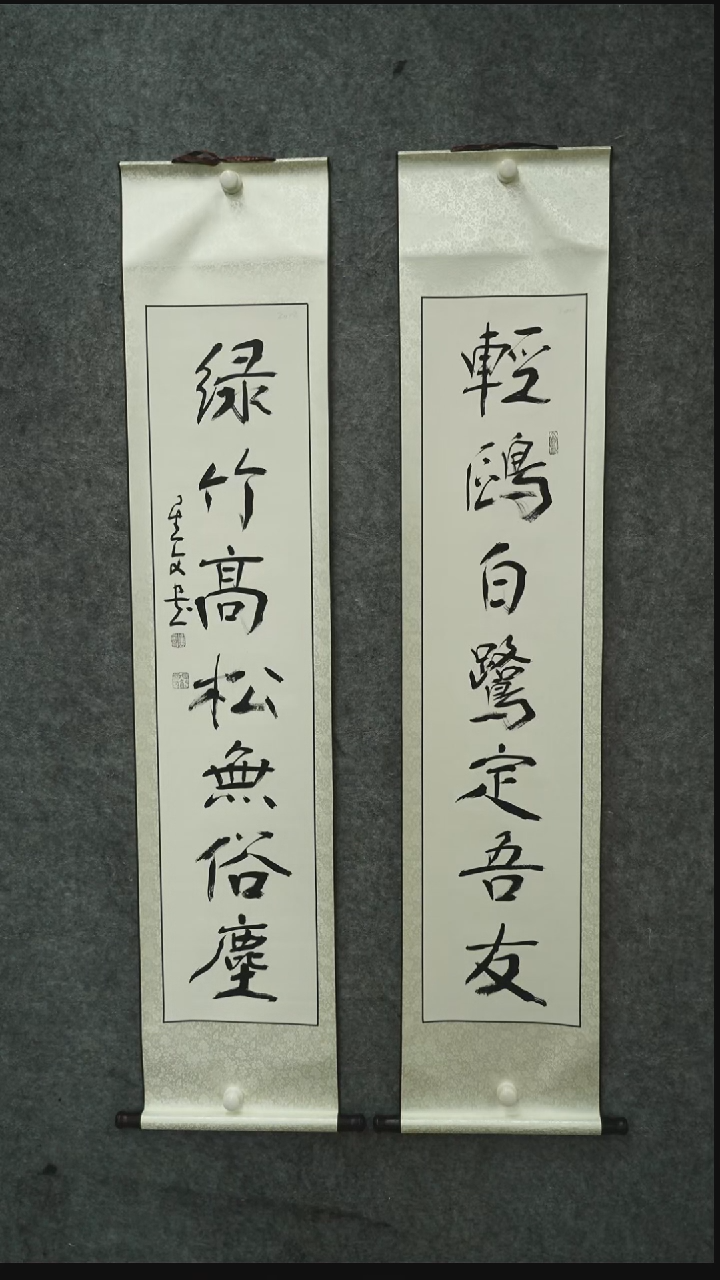 輕鷗白鷺定吾友
绿竹高松無俗塵